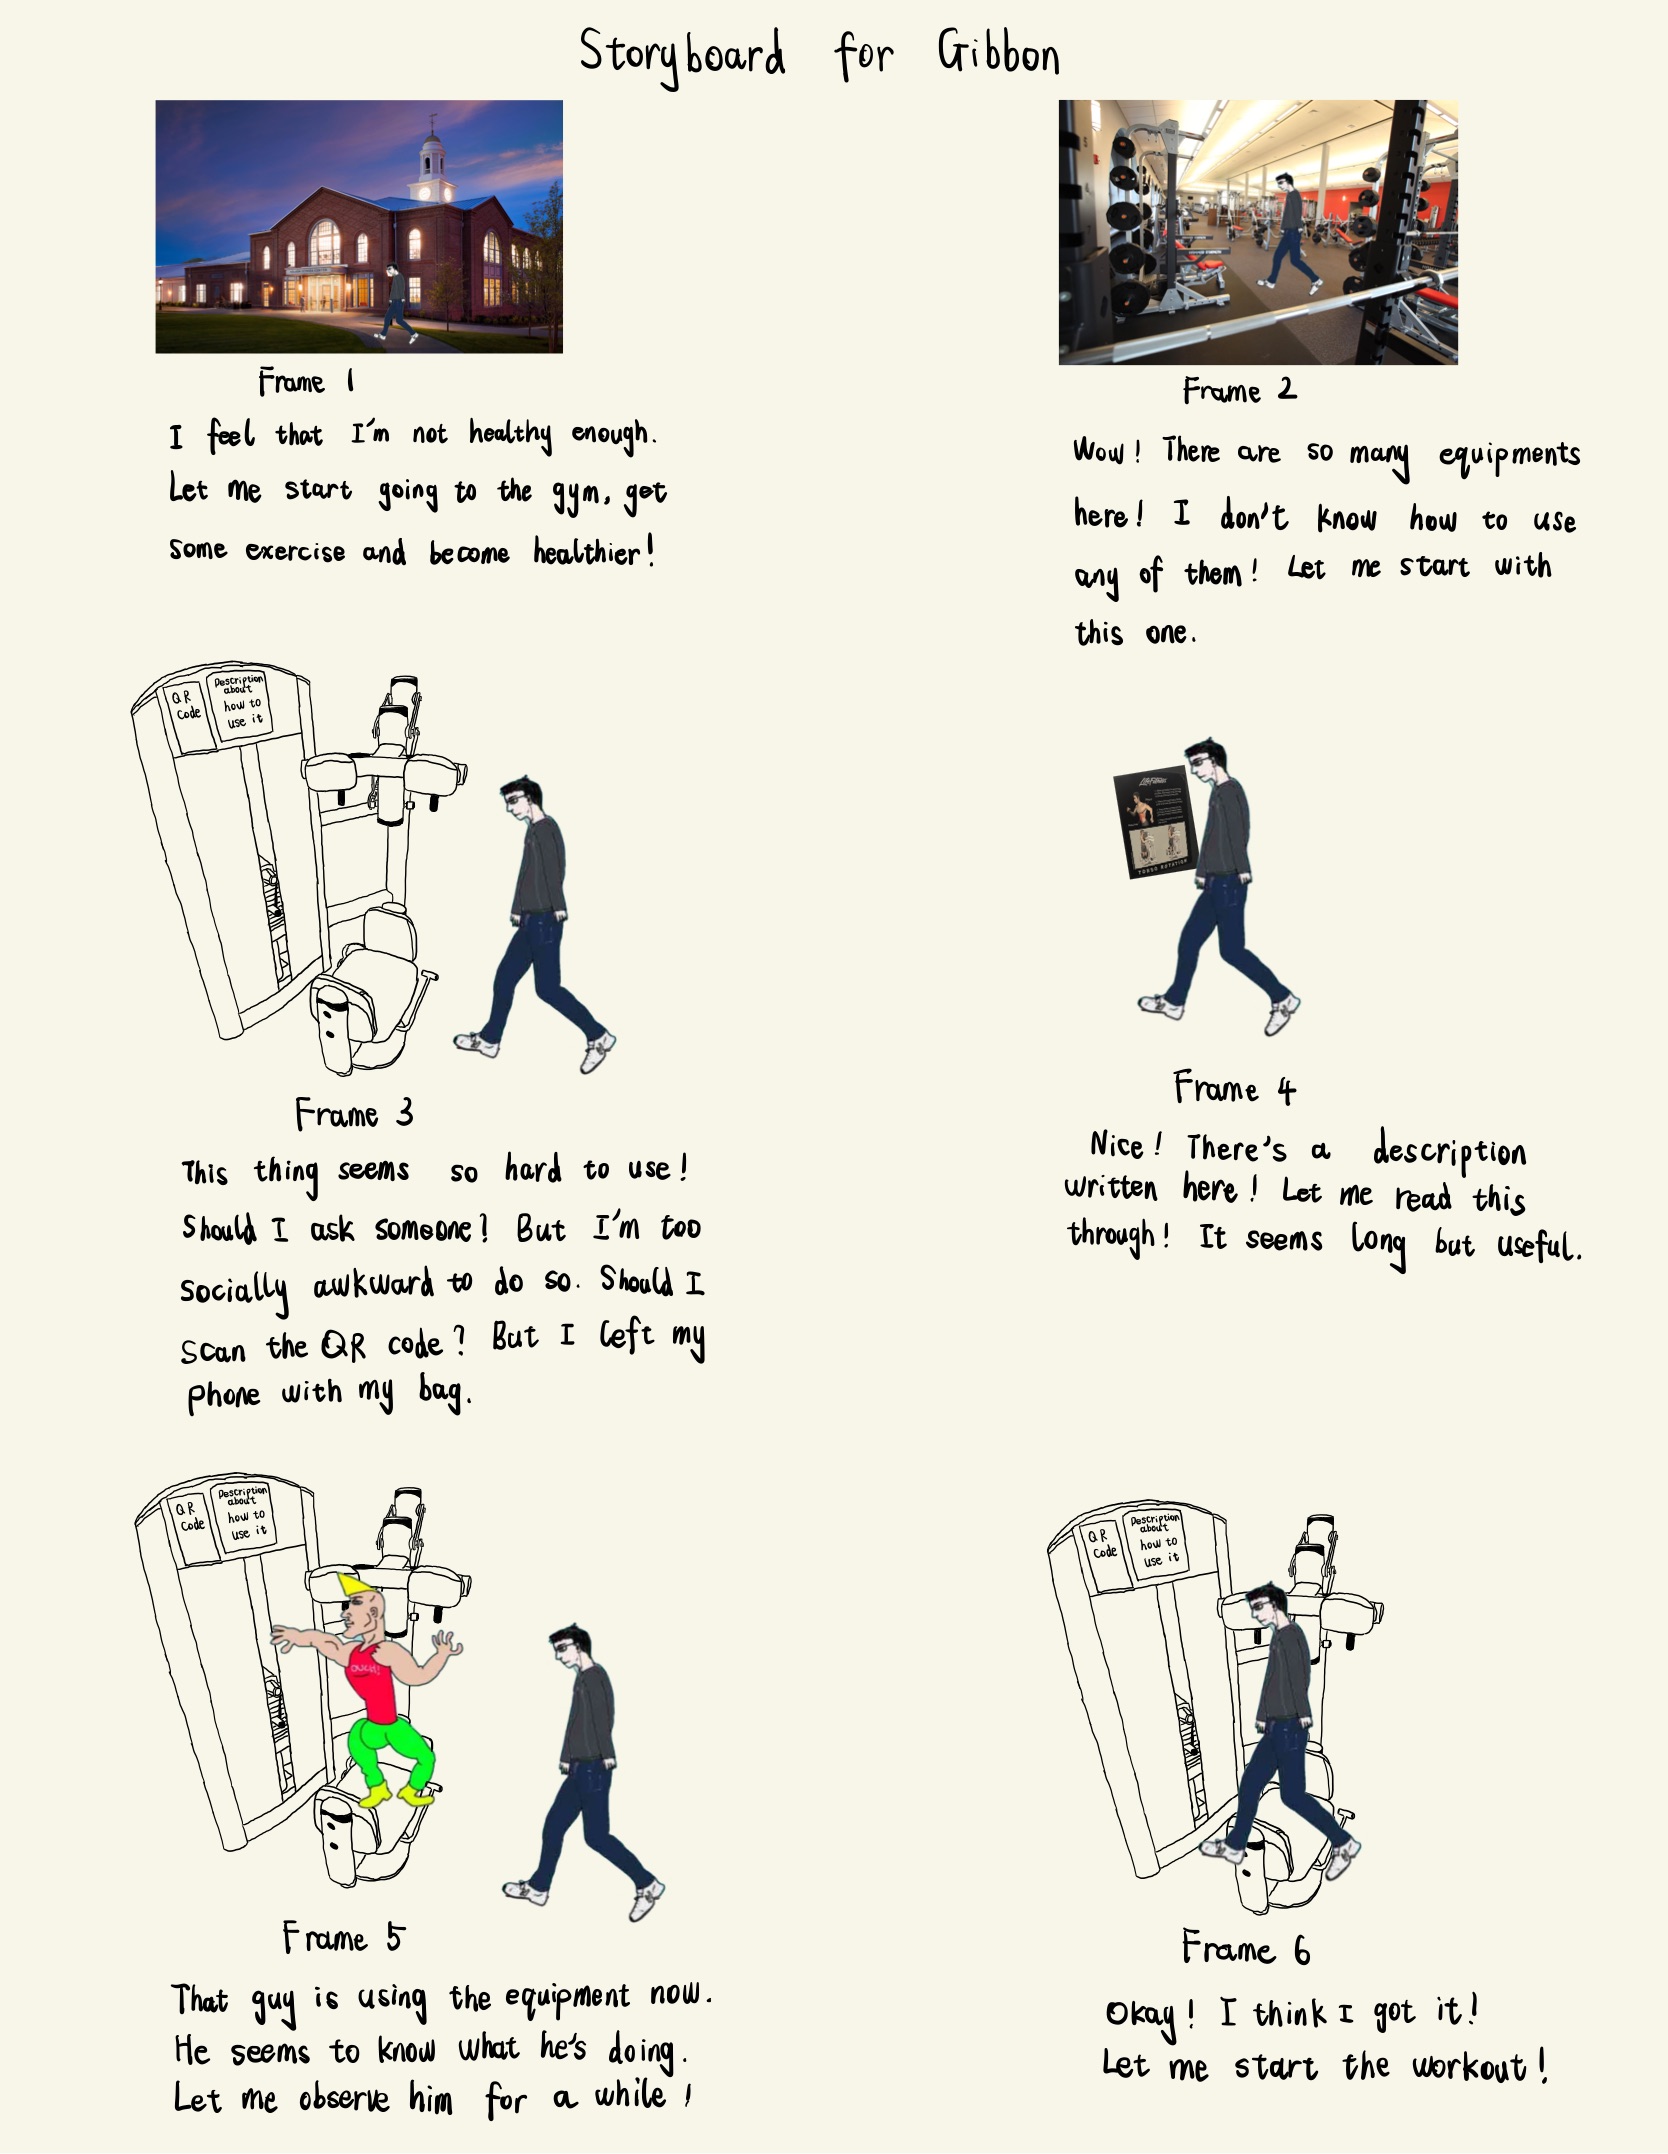 Storyboard for Gibbon
Frame 1
I feel that I'm not healthy enough.
Let me start going to the gym, get
some exercise and become healthier!
Frame 2
Wow! There are so many equipments
here! I don't know how to use
any of them! Let me start with
this one.
QR
Code
Description
about
how to
use it
Frame 3
This thing seems so hard to use!
Should I ask someone? But I'm too
socially awkward to do so. Should I
scan the QR code? But I left my
phone with my bag.
Life Fitness
TORSO ROTATION
Frame 4
Nice! There's a description
written here! Let me read this
through! It seems long but useful.
QR
Code
Description
about
how to
use it
OUCH!
Frame 5
That guy is using the equipment now.
He seems to know what he's doing.
Let me observe him for a while!
QR
Code
Description
about
how to
use it
Frame 6
Okay! I think I got it!
Let me start the workout!